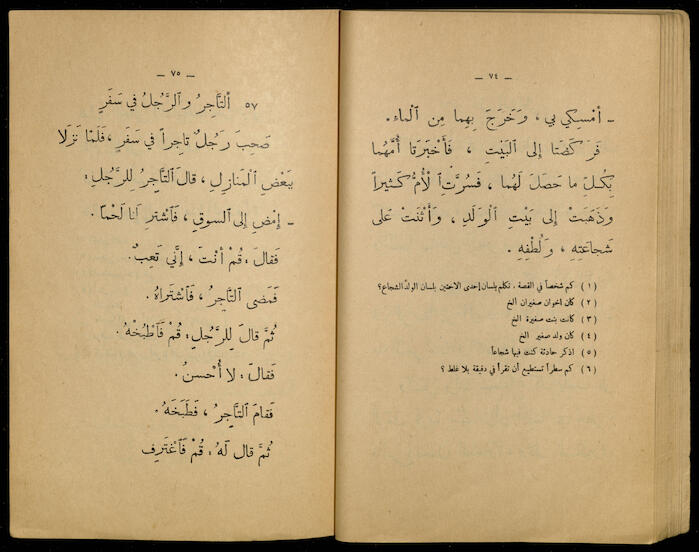 — ٧٤ —
ـ أَمْسِكي بي ، وَخَرَجَ بِهِما مِنِ ٱلْماءِ .
فَرَكَضَتا إِلى ٱلْبَيْتِ ، فَأَخْبَرَتا أُمَّهُما
بِكُلِّ ما حَصَلَ لَهُما ، فَسُرَّتِ ٱلْأُمُّ كَثيراً
وَذَهَبَتْ إِلى بَيْتِ ٱلْوَلَدِ ، وَأَثْنَتْ عَلى
شَجاعَتِهِ ، وَلُطْفِهِ .
(١) كم شخصاً في القصة ، تكلم بلسان إحدى الاختين بلسان الولد الشجاع ؟
(٢) كان اخوان صغيران الخ
(٣) كانت بنت صغيرة الخ
(٤) كان ولد صغير الخ
(٥) اذكر حادثة كنت فيها شجاعاً
(٦) كم سطراً تستطيع أن تقرأ في دقيقة بلا غلط ؟
— ٧٥ —
٥٧ ٱلتّاجِرُ وٱلرَّجُلُ في سَفَرٍ
صَحِبَ رَجُلٌ تاجِراً في سَفَرٍ ، فَلَمّا نَزَلا
بِبَعْضِ ٱلْمَنازِلِ ، قالَ ٱلتّاجِرُ لِلرَّجُلِ :
ـ إِمْضِ إِلى ٱلسوقِ ، فَٱشْتَرِ لَنا لَحْماً .
فَقالَ : قُمْ أَنْتَ ، إِنّي تَعِبٌ .
فَمَضى ٱلتّاجِرُ ، فَٱشْتَراهُ .
ثُمَّ قالَ لِلرَّجُلِ : قُمْ فَٱطْبُخْهُ .
فَقالَ : لا أُحْسِنُ .
فَقامَ ٱلتّاجِرُ ، فَطَبَخَهُ .
ثُمَّ قالَ لَهُ : قُمْ فَٱغْتَرِفْ